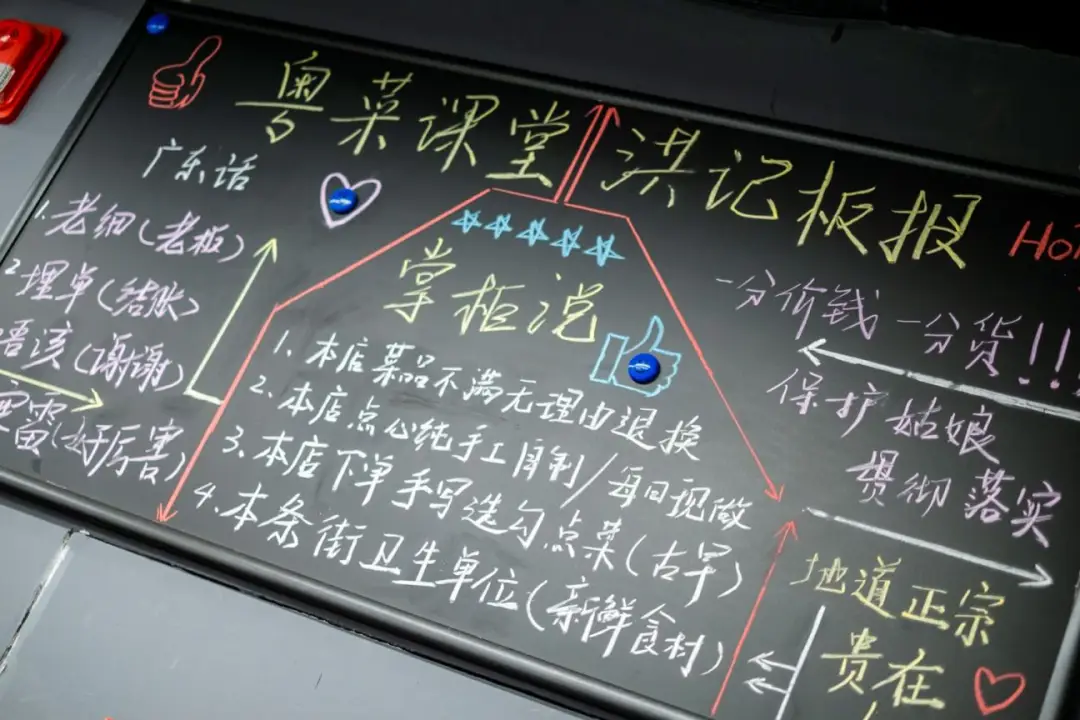 粤菜课堂 洪记板报
广东话
1.老细(老板)
2埋单(结账)
唔该(谢谢)
雷(好厉害)
掌柜说
1.本店菜品不满无理由退换
2.本店点心纯手工自制/每日现做
3.本店下单手写选勾点菜(古早)
4.本条街卫生单位(新鲜食材)
HO
一分价钱一分货!!!
保护姑娘
贯彻落实
地道正宗
贵在